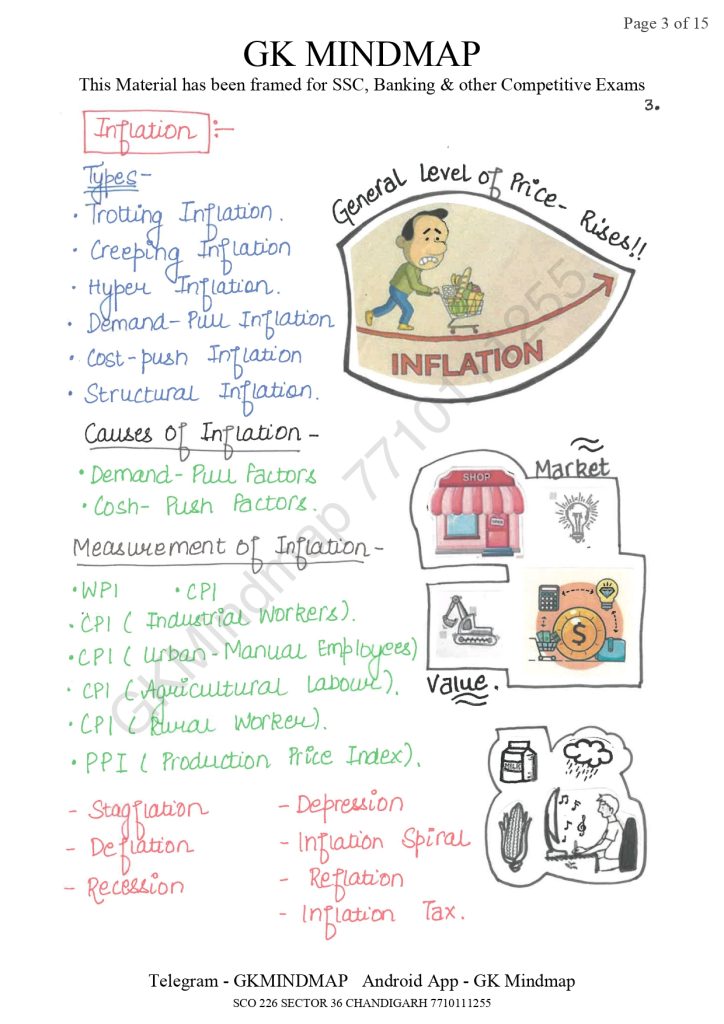 Page 3 of 15
GK MINDMAP
This Material has been framed for SSC, Banking & other Competitive Exams
3.
Inflation :-
Types-
General Level of Price- Rises!!
• Trotting Inflation.
• Creeping Inflation
• Hyper Inflation.
• Demand-Pull Inflation
• Cost-push Inflation
• Structural Inflation.
INFLATION
Causes of Inflation -
• Demand-Pull factors
• Cosh- Push factors.
Market
SHOP
Measurement of Inflation -
• WPI • CPI
• CPI ( Industrial Workers).
• CPI ( Urban-Manual Employees)
• CPI (Agricultural Labour).
• CPI ( Rural Worker).
• PPI ( Production Price Index).
$
Value.
MILK
- Stagflation
- Deflation
- Recession
- Depression
- Inflation Spiral
- Reflation
- Inflation Tax.
GKMindmap 7710111255
Telegram - GKMINDMAP Android App - GK Mindmap
SCO 226 SECTOR 36 CHANDIGARH 7710111255